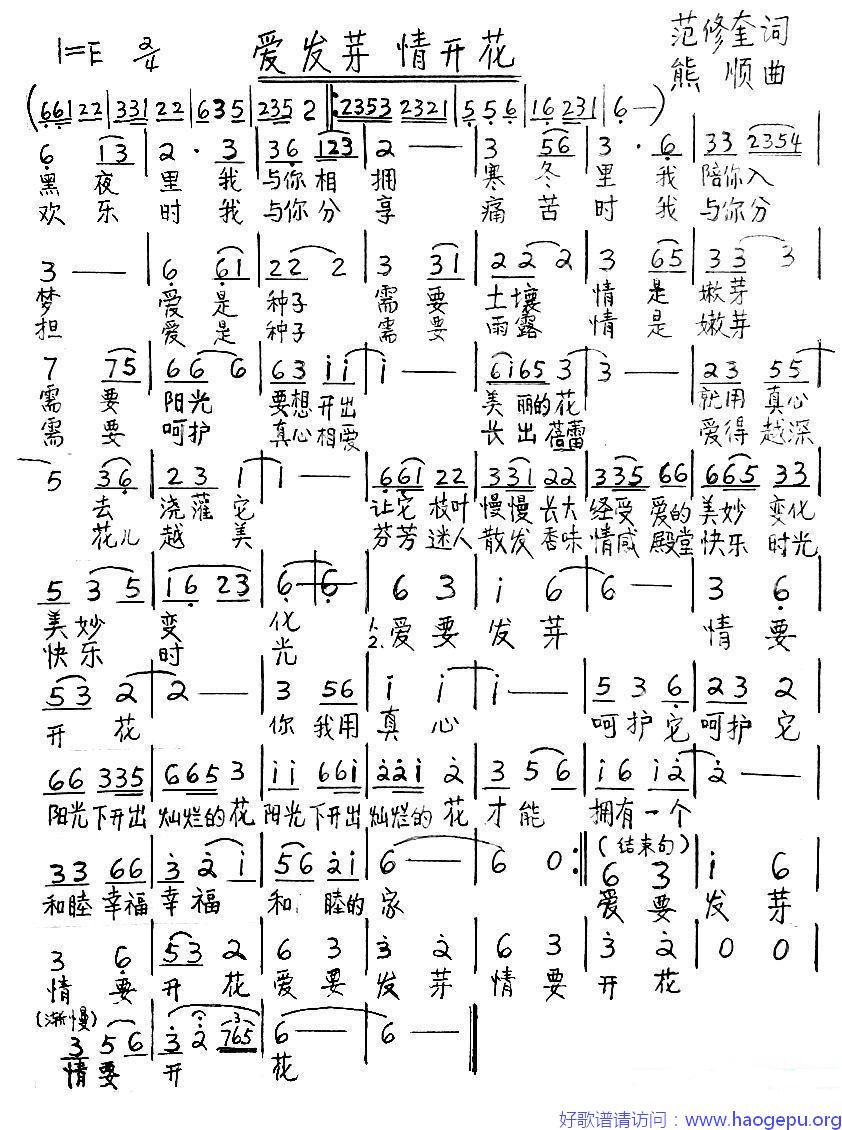 1=E 2/4 爱发芽 情开花 范修奎词
熊 顺 曲
(661 22 | 331 22 | 635 | 235 2 ‖: 2353 2321 | 5 5 6 | 16 231 | 6 — )
6 13 | 2 · 3 | 36 123 | 2 — | 3 56 | 3 · 6 | 33 2354
黑 夜 里 我 与你 相 拥 寒 冬 里 我 陪你 入
欢 乐 时 我 与你 分 享 痛 苦 时 我 与你 分
3 — | 6 61 | 22 2 | 3 31 | 22 2 | 3 65 | 33 3
梦 爱 是 种子 需 要 土壤 情 是 嫩芽
担 爱 是 种子 需 要 雨露 情 是 嫩芽
7 75 | 66 6 | 63 ii | i — | 6i65 3 | 3 — | 23 55
需 要 阳光 要想 开出 美 丽的 花 就用 真心
需 要 呵护 真心 相爱 长 出 蓓蕾 爱得 越深
5 36 | 23 1 | 1 — | 661 22 | 331 22 | 335 66 | 665 33
去 浇灌 它 让它 枝叶 慢慢 长大 经受 爱的 美妙 变化
花儿 越 美 芬芳 迷人 散发 香味 情感 殿堂 快乐 时光
5 3 5 | 16 23 | 6 — 6 | 6 3 | i 6 | 6 — | 3 6
美 妙 变 化 1. 爱 要 发 芽 情 要
快 乐 时 光 2.
53 2 | 2 — | 3 56 | i i | i — | 5 3 6 | 23 2
开 花 你 我用 真 心 呵护它 呵护 它
66 335 | 665 3 | ii 66i | 22i 2 | 3 5 6 | i6 i2 | 2 —
阳光 下开出 灿烂的 花 阳光 下开出 灿烂的 花 才能 拥有 一个
33 66 | 3 2 i | 56 2i | 6 — | 6 0 :‖ (结束句) 6 3 | i 6
和睦 幸福 幸 福 和 睦的 家 爱 要 发 芽
3 6 | 53 2 | 6 3 | 3 2 | 6 3 | 3 2 | 0 0
情 要 开 花 爱 要 发 芽 情 要 开 花
(渐慢)
3 5 6 | 3 2 765 | 6 — | 6 — ‖
情 要 开 花
好歌谱请访问：www.haogepu.org